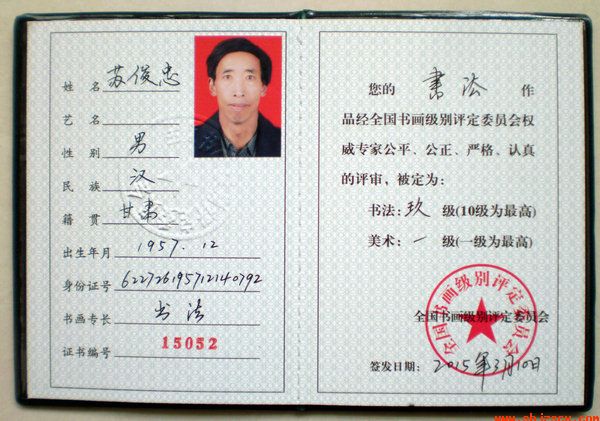 姓 名 苏俊忠
艺 名
性 别 男
民 族 汉
籍 贯 甘肃
出生年月 1957.12
身份证号 622726195712140792
书画专长 书法
证书编号 15052
您的 书法 作
品经全国书画级别评定委员会权
威专家公平、公正、严格、认真
的评审，被定为：
书法：玖 级(10级为最高)
美术：一 级(一级为最高)
全国书画级别评定委员会
全国书画级别评定委员会
签发日期：2015年3月10日